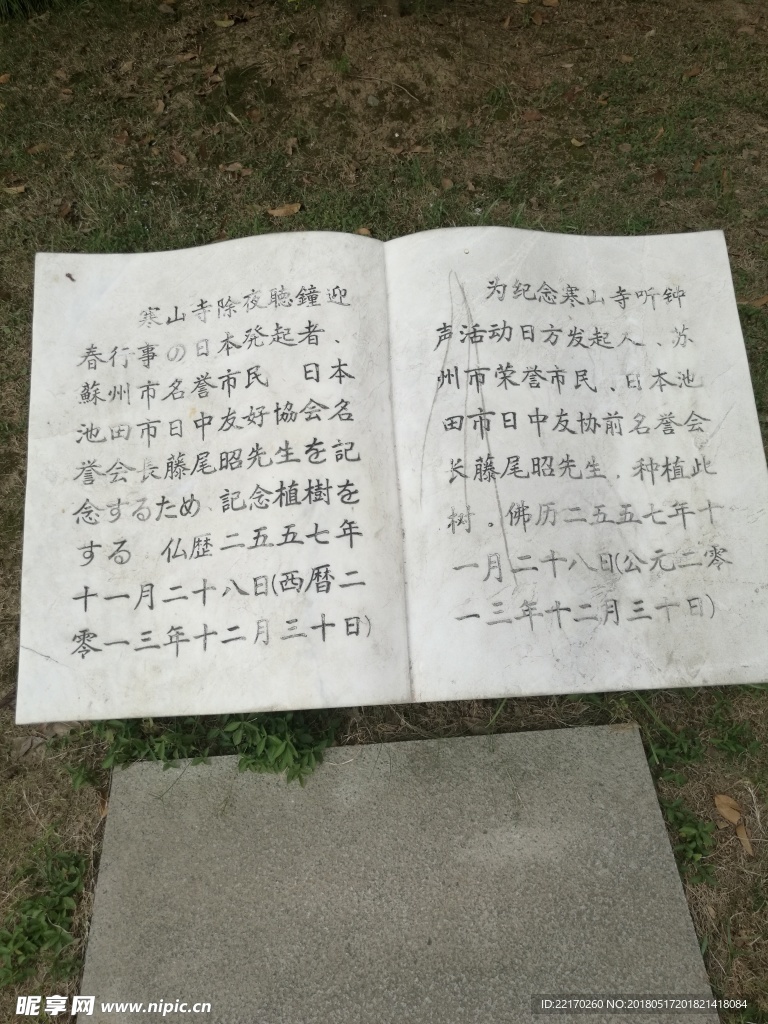 寒山寺除夜聴鐘迎
春行事の日本発起者、
蘇州市名誉市民　日本
池田市日中友好協会名
誉会長藤尾昭先生を記
念するため、記念植樹を
する　仏歴二五五七年
十一月二十八日(西暦二
零一三年十二月三十日)
为纪念寒山寺听钟
声活动日方发起人、苏
州市荣誉市民、日本池
田市日中友协前名誉会
长藤尾昭先生，种植此
树。佛历二五五七年十
一月二十八日(公元二零
一三年十二月三十日)
昵享网 www.nipic.cn
ID:22170260 NO:20180517201821418084